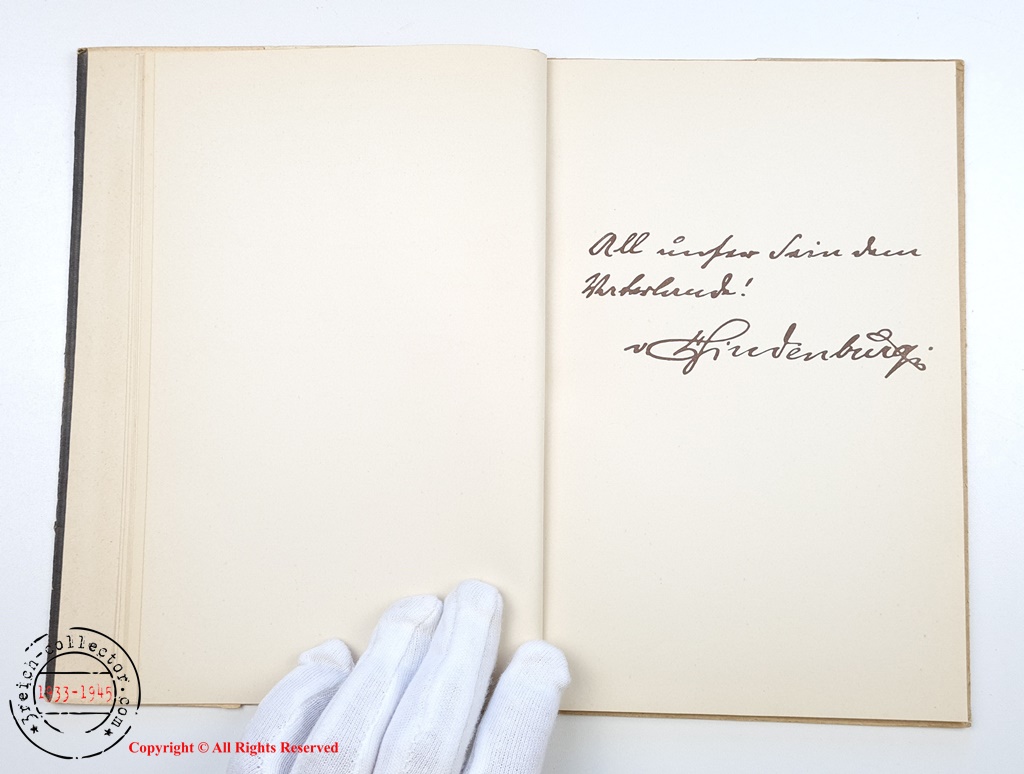 All unser Sein dem
Vaterlande!
v Hindenburg.
3reich-collector.com
1933-1945
Copyright © All Rights Reserved